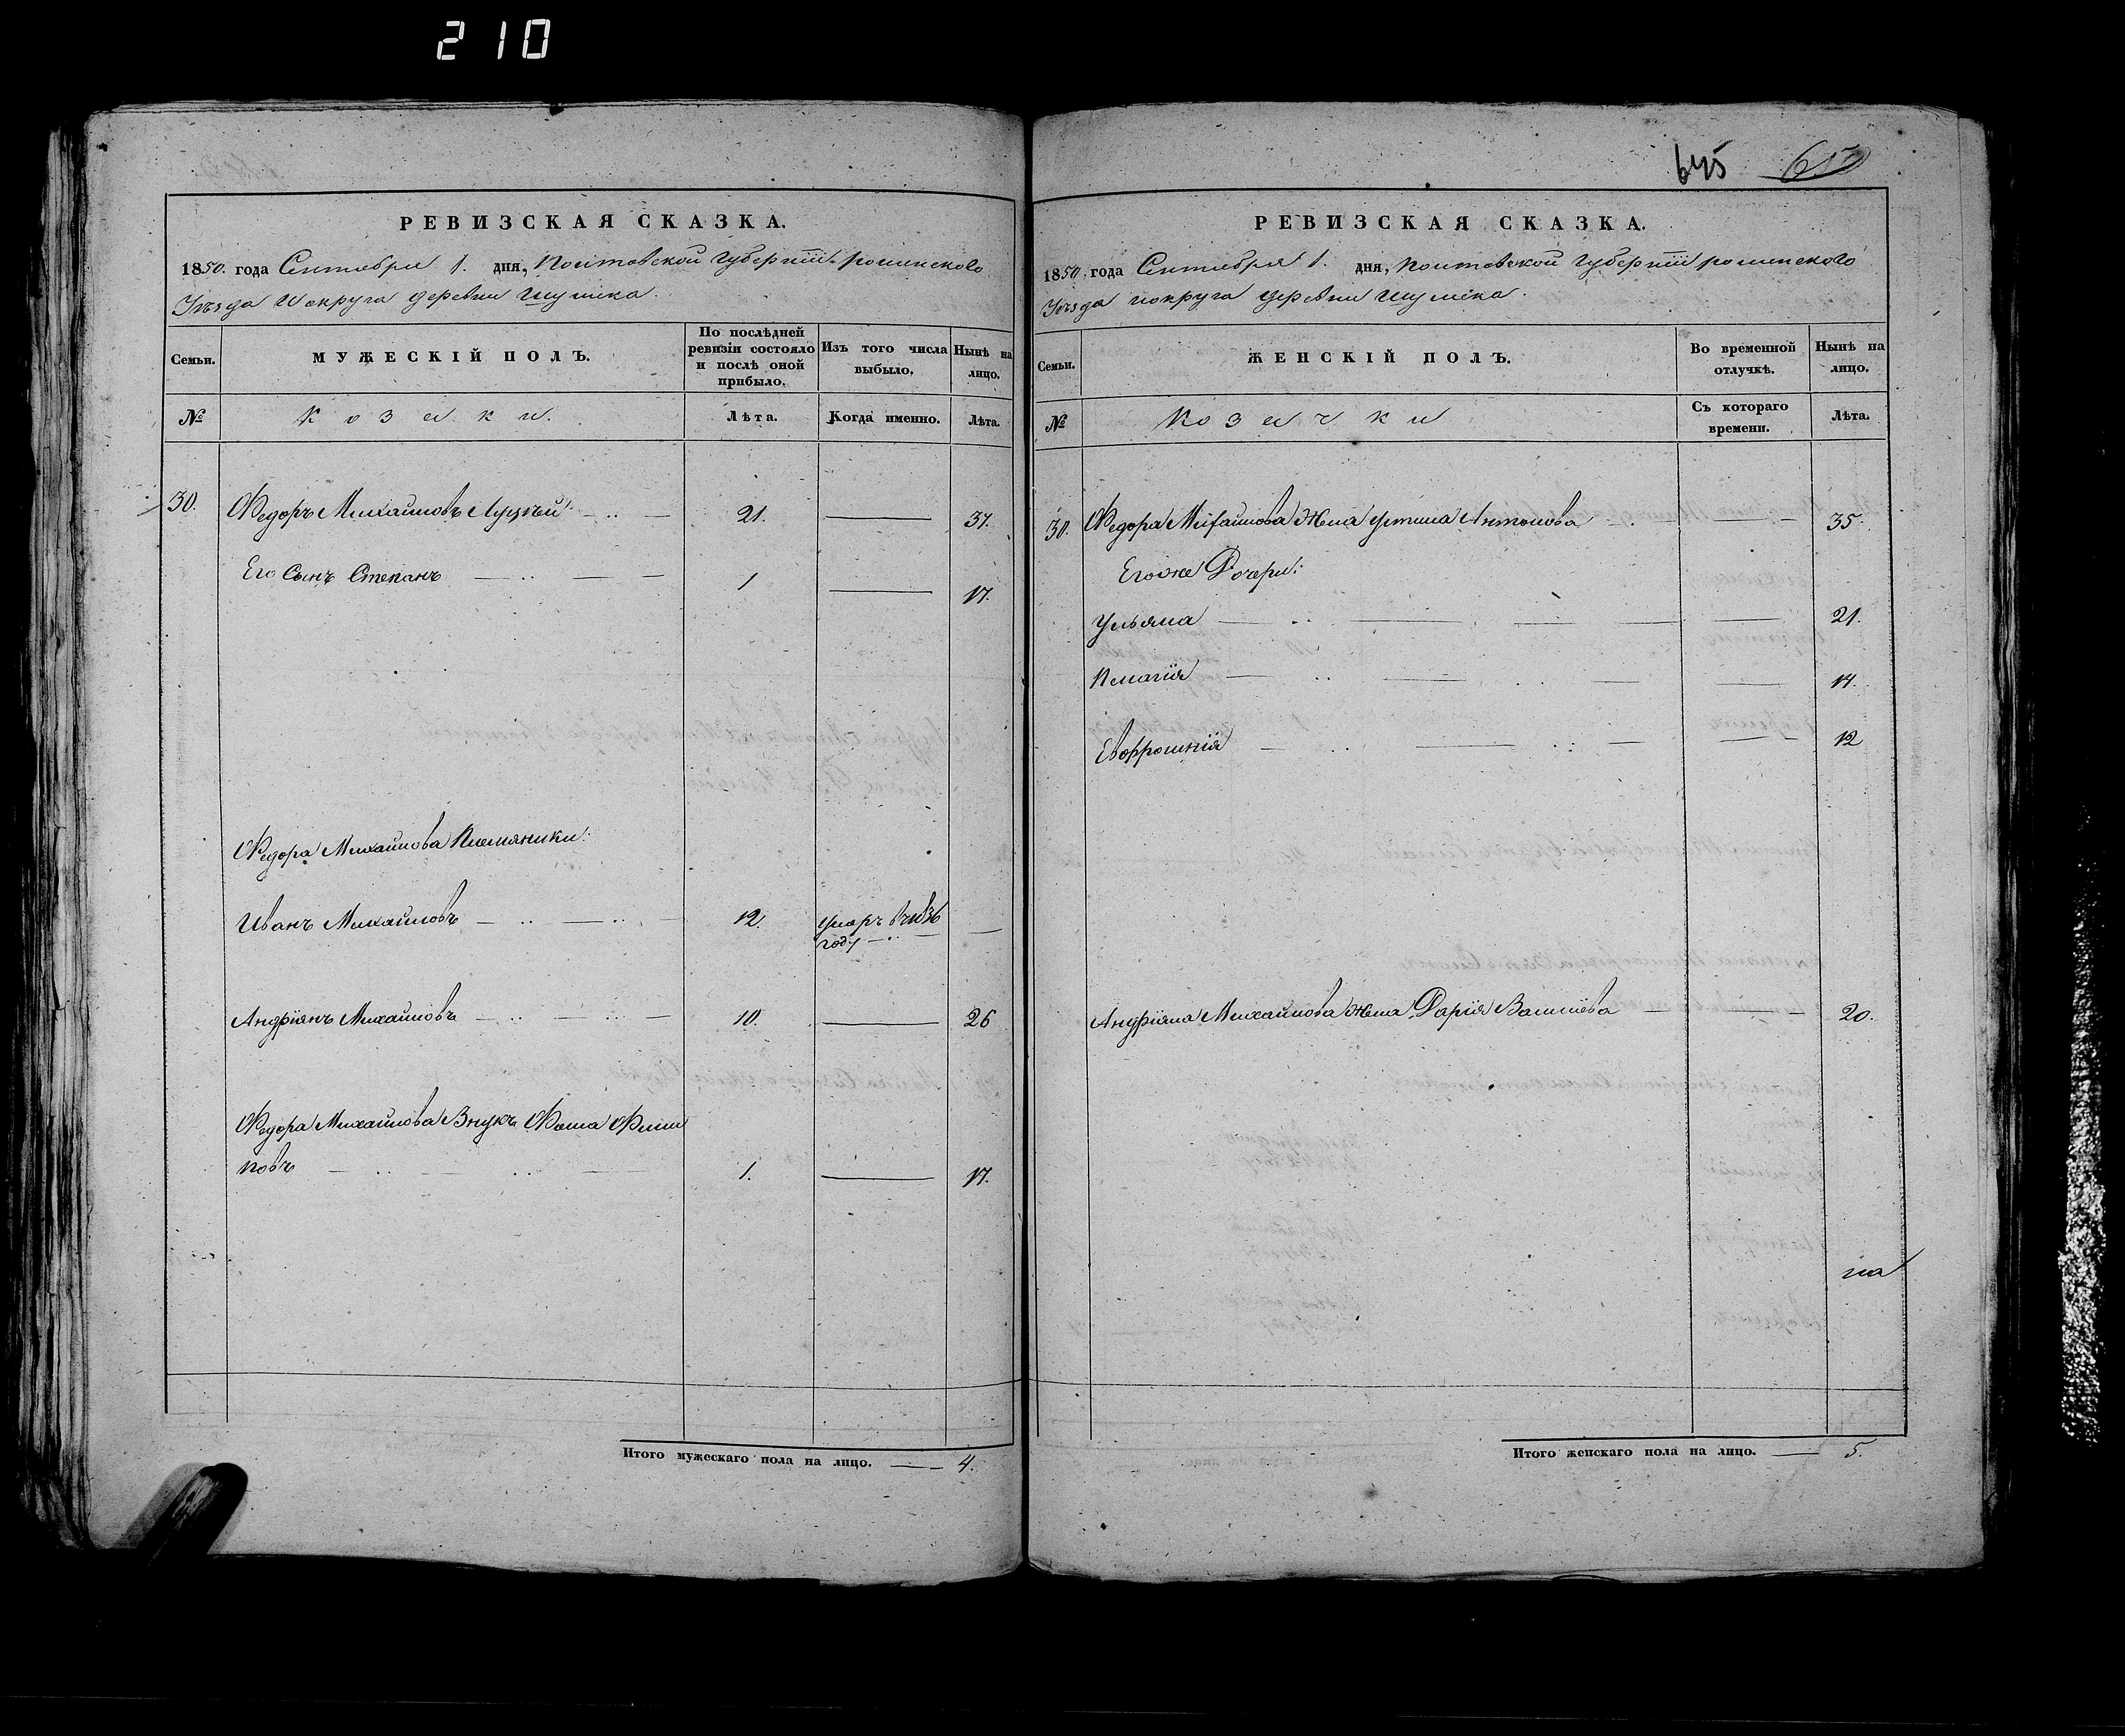 210
645 650
РЕВИЗСКАЯ СКАЗКА.
1850. года Сентября 1. дня, Полтавской Губерніи роменского
Уезда и округа деревни Шумска.
Семьи. МУЖЕСКІЙ ПОЛЪ. По послѣдней ревизіи состояло и послѣ оной прибыло. Изъ того числа выбыло. Нынѣ на лицо.
№ Козаки. Лѣта. Когда именно. Лѣта.
30. Федоръ Михайловъ 21. 37.
Его Сынъ Степанъ 1 17.
Федора Михайлова Племяники:
Иванъ Михайловъ 12. умеръ в 1836
году
Андріянъ Михайловъ 10. 26
Федора Михайлова Внукъ Фома Фили
повъ 1. 17.
Итого мужескаго пола на лицо. 4.
РЕВИЗСКАЯ СКАЗКА.
1850. года Сентября 1. дня, Полтавской Губерніи роменского
Уезда и округа деревни Шумска.
Семьи. ЖЕНСКІЙ ПОЛЪ. Во временной отлучкѣ. Нынѣ на лицо.
№ Козачки Съ котораго времени. Лѣта.
30. Федора Михайлова Жена Устина Антонова 35
Егоже Дочери:
Ульяна 21.
Пелагія 14.
Евфросинія 12
Андріяна Михайлова Жена Дарія Васильева 20.
на
Итого женскаго пола на лицо. 5.